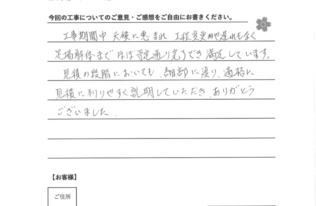 今回の工事についてのご意見・ご感想をご自由にお書きください。
工事期間中 天候に恵まれ 工程変更や遅れもなく
足場解体まで ほぼ予定通り完了でき 満足しています。
見積の段階においても、細部に渡り、適格に
見積に判りやすく説明していただき、ありがとう
ございました。
【お客様】
ご住所